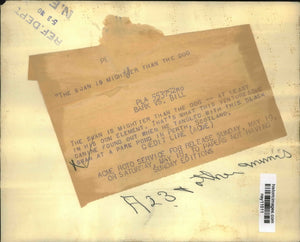 REF. DEPT.
N E
"THE SWAN IS MIGHTIER THAN THE DOG
BARK VS. BILL
THE SWAN IS MIGHTIER THAN THE DOG -- AT LEAST
IN HIS OWN ELEMENT. THAT'S WHAT THIS VENTURESOME
CANINE FOUND OUT WHEN HE TANGLED WITH THIS BLACK
SWAN AT A PARK POND IN PERTH, SCOTLAND.
CREDIT LINE (ACME)
ACME ROTO SERVICE FOR RELEASE SUNDAY, MAY
OR SATURDAY, MAY PAPERS NOT HAVING
SUNDAY EDITIONS
A23 + other animals